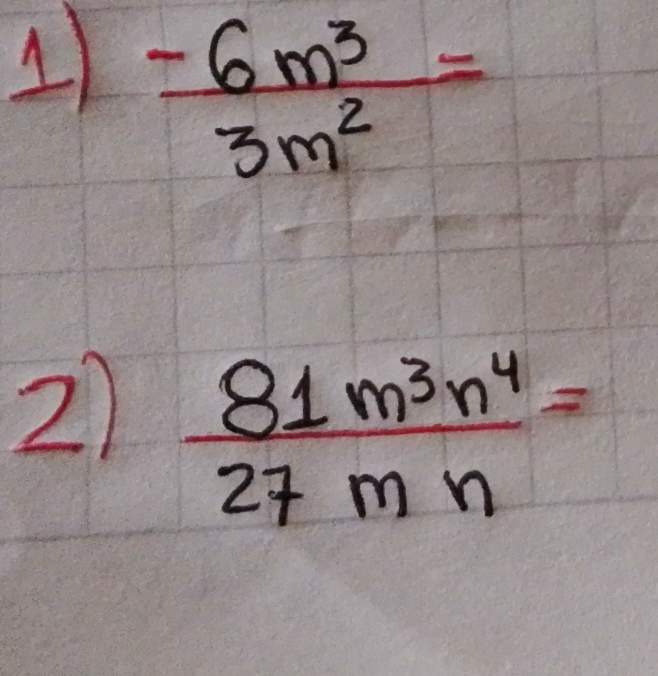 1) - 6 m³ =
3 m²
2) 81 m³ n⁴ =
27 m n